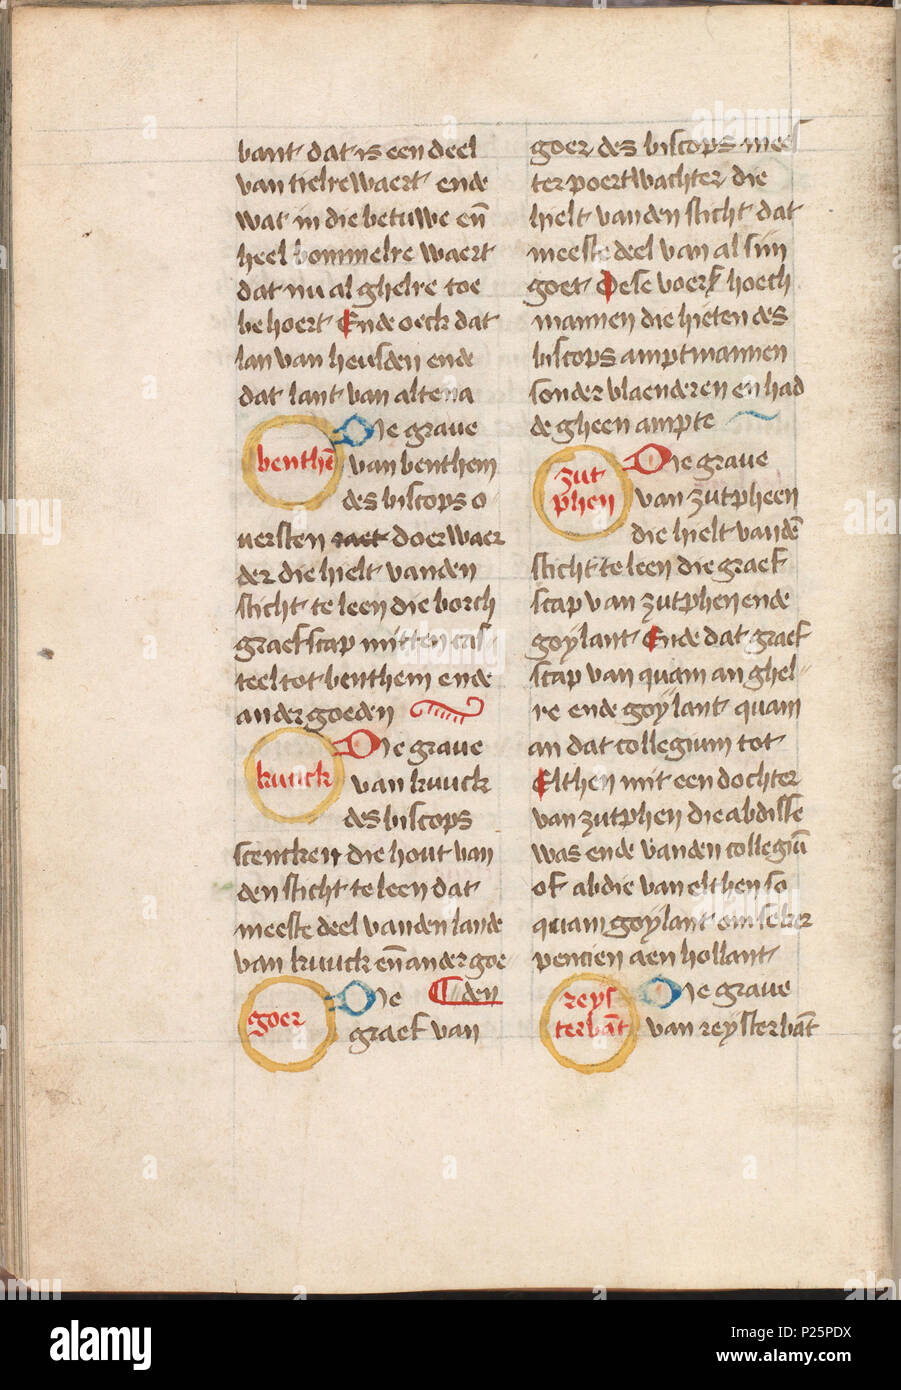 bant dat is een deel
van tielre waert ende
wat in die betuwe en̄
heel bommelre waert
dat nu al ghelre toe
behoert Ende oeck dat
lan van heusden ende
dat lant van altena
benthē
Die graue
van benthem
des biscops o
uersten raet doerwaer
der die hielt vanden
sticht te leen die borch
graefscap mitten cas
teel tot benthem ende
ander goeden
kuuck
Die graue
van kuuck
des biscops
scencken die hout van
den sticht te leen dat
meeste deel vanden lande
van kuuck en̄ ander goe
den
goer
Die
graef van
goer des biscops mees
ter poertwachter die
hielt vanden sticht dat
meeste deel van al sijn
goet Dese voers hoech
mannen die hieten des
biscops amptmannen
sonder vlaenderen en had
de gheen ampte
zut
phen
Die graue
van zutpheen
die hielt vandē
sticht te leen die graef
scap van zutphen ende
goÿlant Ende dat graef
scap van quam an ghel
re ende goÿlant quam
an dat collegium tot
Elthen mit een dochter
van zutphen die abdisse
was ende vanden collegiū
of abdie van elthen so
quam goÿlant om seker
pencien aen hollant
reys
terbāt
Die graue
van reÿsterbāt
alamy
Image ID: P25PDX
www.alamy.com